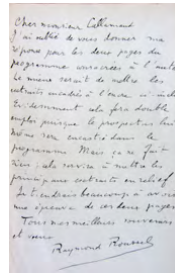 Cher monsieur Callemand
J'ai oublié de vous donner ma
réponse pour les deux pages du
programme consacrées à l'auteur
Le mieux serait de mettre les
extraits encadrés à l'encre
Evidemment cela fera double
emploi puisque le prospectus lui
même sera encarté dans le
programme Mais ça ne fait
rien cela servira à mettre les
principaux extraits en relief
Je tiendrais beaucoup à avoir
une épreuve de ces deux pages
Tous mes meilleurs souvenirs
et vœux
Raymond Roussel